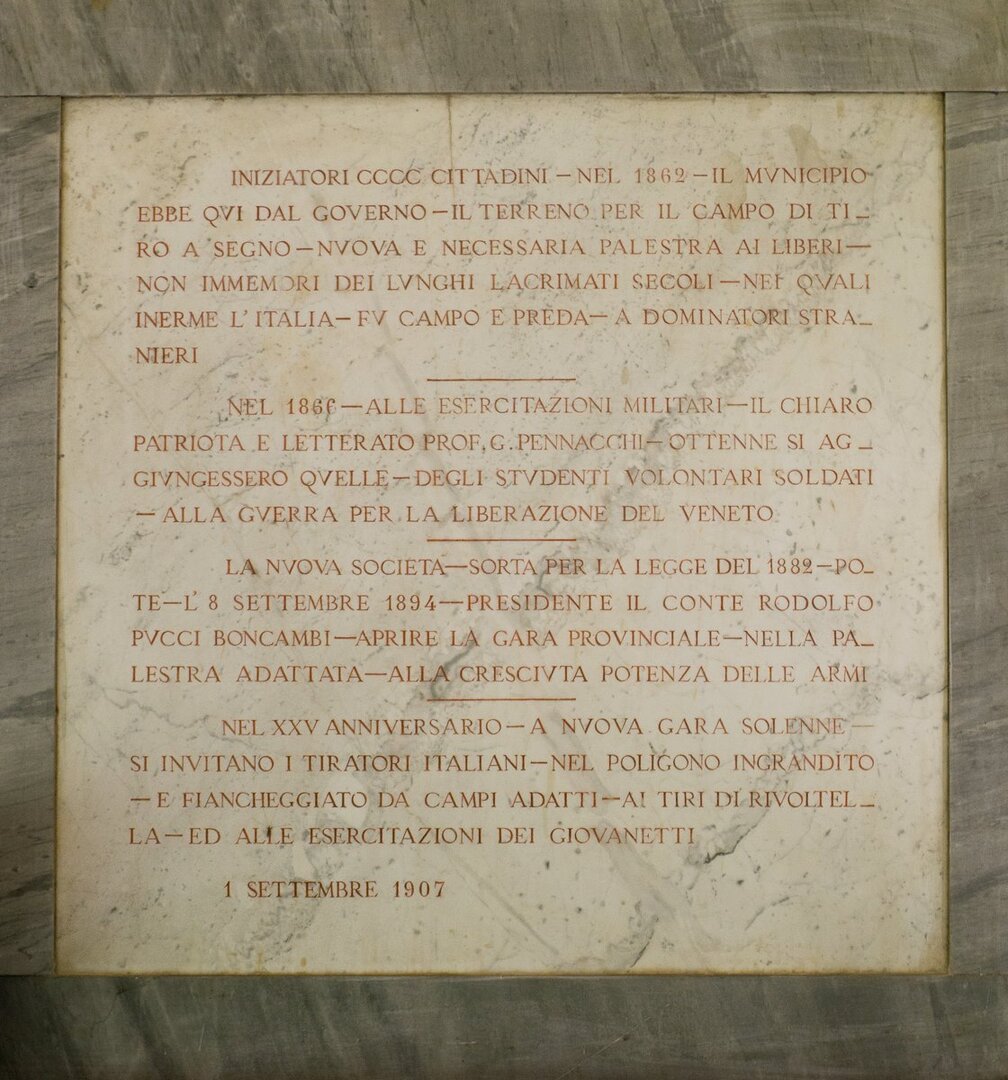 INIZIATORI CCCC CITTADINI — NEL 1862 — IL MVNICIPIO
EBBE QVI DAL GOVERNO — IL TERRENO PER IL CAMPO DI TI_
RO A SEGNO — NVOVA E NECESSARIA PALESTRA AI LIBERI —
NON IMMEMORI DEI LVNGHI LACRIMATI SECOLI — NEI QVALI
INERME L'ITALIA — FV CAMPO E PREDA — A DOMINATORI STRA_
NIERI
NEL 1866 — ALLE ESERCITAZIONI MILITARI — IL CHIARO
PATRIOTA E LETTERATO PROF. G. PENNACCHI — OTTENNE SI AG_
GIVNGESSERO QVELLE — DEGLI STVDENTI VOLONTARI SOLDATI
— ALLA GVERRA PER LA LIBERAZIONE DEL VENETO
LA NVOVA SOCIETA — SORTA PER LA LEGGE DEL 1882 — PO_
TE — L' 8 SETTEMBRE 1894 — PRESIDENTE IL CONTE RODOLFO
PVCCI BONCAMBI — APRIRE LA GARA PROVINCIALE — NELLA PA_
LESTRA ADATTATA — ALLA CRESCIVTA POTENZA DELLE ARMI
NEL XXV ANNIVERSARIO — A NVOVA GARA SOLENNE —
SI INVITANO I TIRATORI ITALIANI — NEL POLIGONO INGRANDITO
— E FIANCHEGGIATO DA CAMPI ADATTI — AI TIRI DI RIVOLTEL_
LA — ED ALLE ESERCITAZIONI DEI GIOVANETTI
1 SETTEMBRE 1907